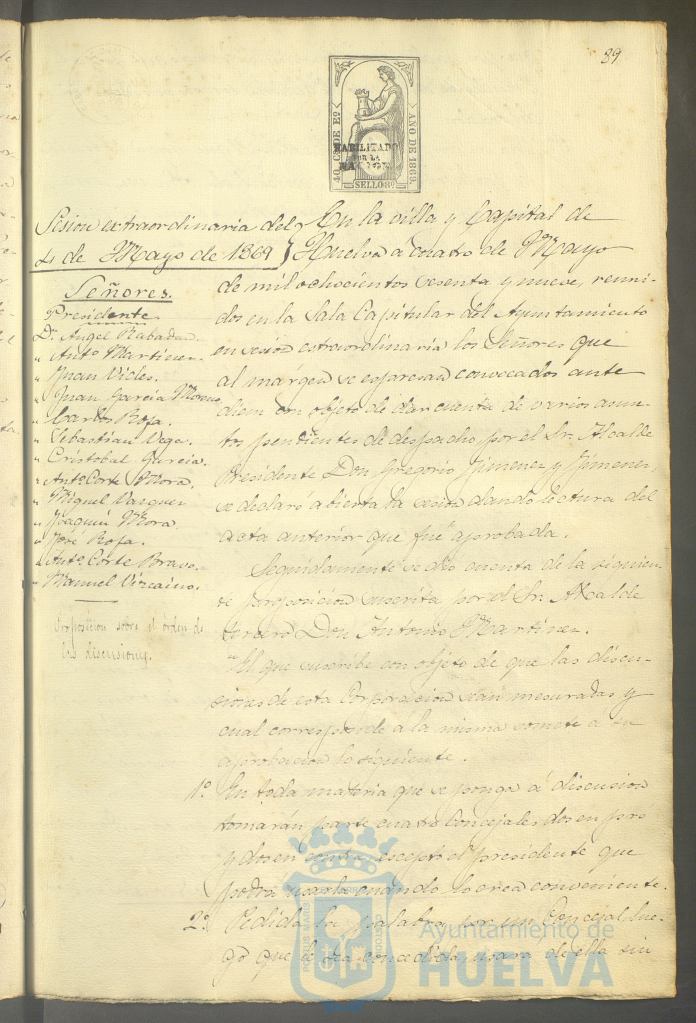 89
40 CS. DE Eº
AÑO DE 1869.
HABILITADO
POR LA
NACION.
SELLO 8º
Sesion extraordinaria del
4 de Mayo de 1869
Señores.
Presidente
Dn. Angel Rabadan.
" Antº Martinez.
" Juan Vides.
" Juan Garcia Moreno
" Carlos Rofa.
" Sebastian Vega.
" Cristobal Garcia.
" Antº Corte Mora.
" Miguel Vazquez
" Joaquin Mora.
" José Rofa.
" Antº Corte Bravo.
" Manuel Vizcaino.
Proposicion sobre el orden de
las discusiones.
En la villa y Capital de
Huelva a cuatro de Mayo
de mil ochocientos sesenta y nueve, reuni-
dos en la Sala Capitular del Ayuntamiento
en sesion extraordinaria los Señores que
al márgen se espresan convocados ante
diem con objeto de dar cuenta de varios asun-
tos pendientes de despacho, por el Sr. Alcalde
Presidente Don Gregorio Jimenez y Jimenez,
se declaró abierta la sesion dando lectura del
acta anterior que fué aprobada.
Seguidamente se dió cuenta de la siguien-
te proposicion suscrita por el Sr. Alcalde
tercero Don Antonio Martinez.
"El que suscribe con objeto de que las discu-
siones de esta Corporacion sean mesuradas y
cual corresponde á la misma somete á su
aprobacion lo siguiente.
1º. En toda materia que se ponga á discusion
tomarán parte cuatro Concejales dos en pró
y dos en contra, escepto el presidente que
podrá usarla cuando lo crea conveniente.
2º. Pedida la palabra por un Concejal lue-
go que le sea concedida usará de ella sin
Ayuntamiento de
HUELVA